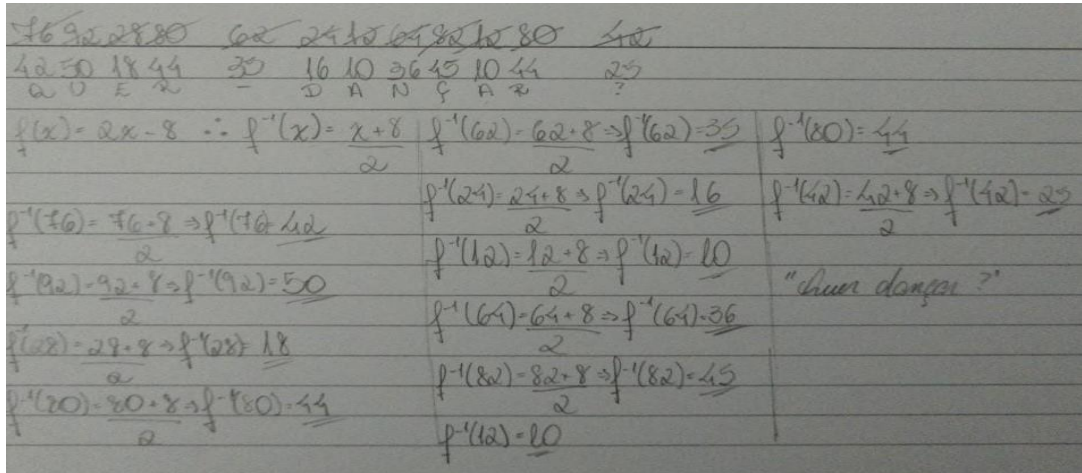 76 92 28 80 62 24 12 64 82 12 80 42
42 50 18 44 35 16 10 36 45 10 44 25
Q U E R - D A N Ç A R ?
f(x) = 2x - 8 ∴ f⁻¹(x) = x+8/2
f⁻¹(76) = 76+8/2 ⇒ f⁻¹(76) = 42
f⁻¹(92) = 92+8/2 ⇒ f⁻¹(92) = 50
f⁻¹(28) = 28+8/2 ⇒ f⁻¹(28) = 18
f⁻¹(80) = 80+8/2 ⇒ f⁻¹(80) = 44
f⁻¹(62) = 62+8/2 ⇒ f⁻¹(62) = 35
f⁻¹(24) = 24+8/2 ⇒ f⁻¹(24) = 16
f⁻¹(12) = 12+8/2 ⇒ f⁻¹(12) = 10
f⁻¹(64) = 64+8/2 ⇒ f⁻¹(64) = 36
f⁻¹(82) = 82+8/2 ⇒ f⁻¹(82) = 45
f⁻¹(12) = 10
f⁻¹(80) = 44
f⁻¹(42) = 42+8/2 ⇒ f⁻¹(42) = 25
"Quer dançar?"